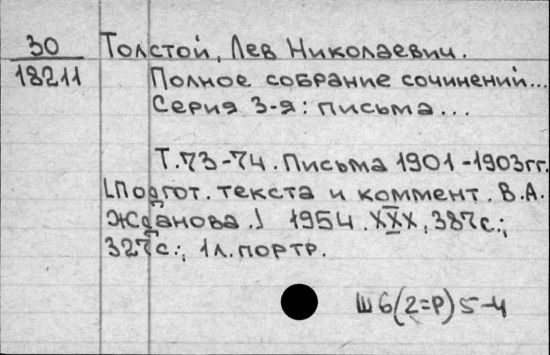 30 Толстой, Лев Николаевич.
18211 Полное собрание сочинений...
Серия 3-я: письма...
Т.73-74. Письма 1901-1903гг.
[Подгот. текста и коммент. В.А.
Жданова.] 1954. XXX, 387с.;
327с.; 1л. портр.
Ш6(2=Р)5-4